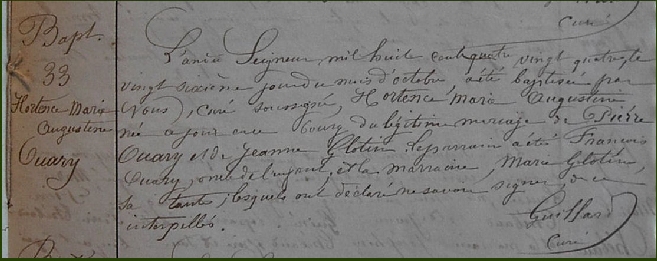 Curé
Bapt.
33
Hortence Marie
Augustine
Ouary
L'an du Seigneur mil huit cent quatre vingt quatre le
vingt sixième jour du mois d'octobre a été baptisée par
Nous, curé soussigné, Hortence Marie Augustine
née ce jour au bourg du légitime mariage de Pierre
Ouary et de Jeanne Glotin. Le parrain a été François
Ouary, oncle de l'enfant, et la marraine, Marie Glotin,
sa tante, lesquels ont déclaré ne savoir signer, de ce
interpellés.
Guiffard
Curé